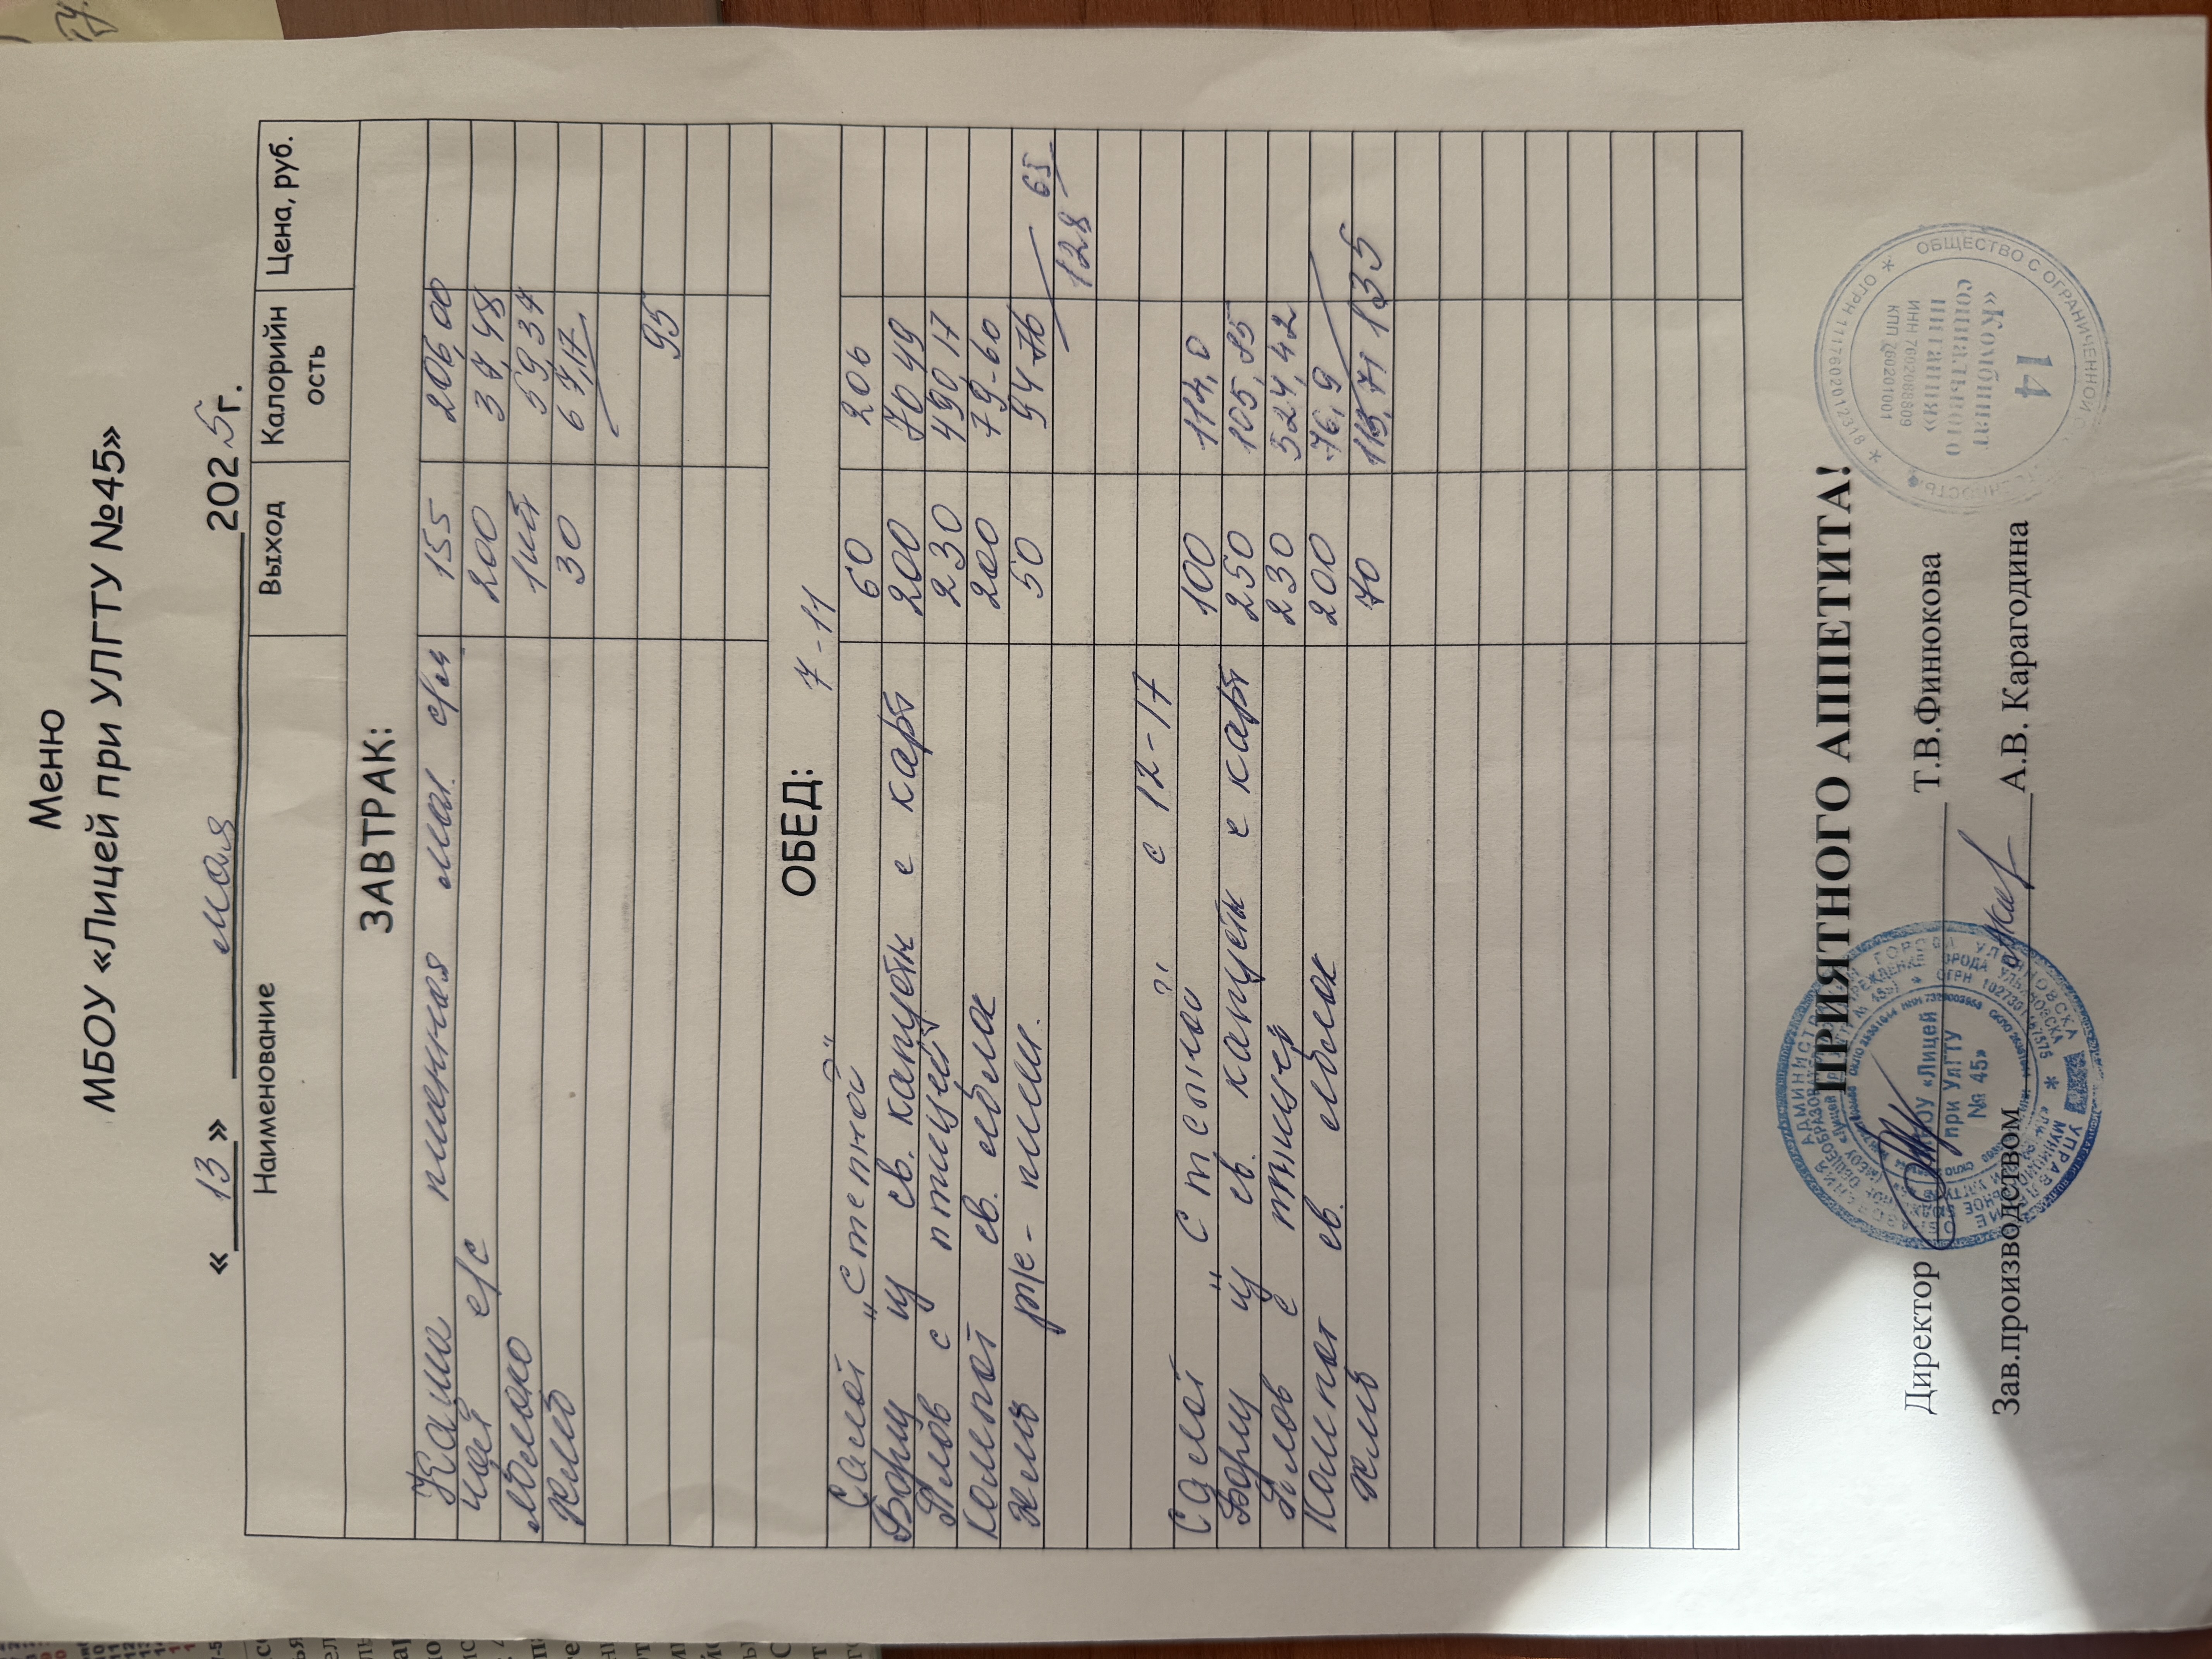 Меню
МБОУ «Лицей при УЛГТУ №45»
« 13 » мая 2025г.
Наименование Выход Калорийн ость Цена, руб.
ЗАВТРАК:
Каша пшенная мол. с/м 155 206,00
чай с/с 200 37,48
яблоко 1шт 59,34
хлеб 30 67,17
95
ОБЕД: 7-11
Салат "Степной" 60 206
Борщ из св. капусты с карт 200 70 49
Плов с птицей 230 490,17
Компот св. яблок 200 79-60
хлеб рж-пш. 50 94 76 65
128
с 12-17
Салат "Степной" 100 114,0
Борщ из св. капусты с карт 250 105,85
Плов с птицей 230 524,42
Компот св. яблок 200 76,9
хлеб 70 113,71 135
ПРИЯТНОГО АППЕТИТА!
Директор Т.В.Финюкова
Зав.производством А.В. Карагодина
МБОУ «Лицей при УлГТУ № 45»
ОБЩЕСТВО С ОГРАНИЧЕННОЙ
ОГРН 1117602012318
«Комбинат социального питания»
ИНН 7602088809
КПП 760201001
14